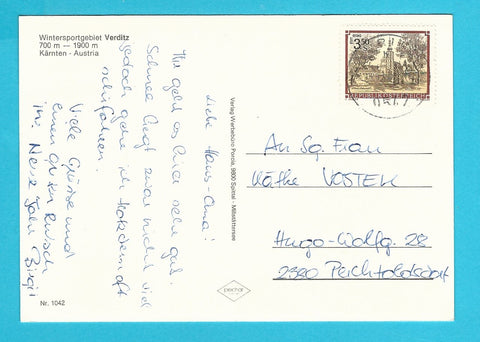 Wintersportgebiet Verditz
700 m — 1900 m
Kärnten - Austria
Liebe Hans-Oma!
Ihr geht es hier sehr gut.
Schnee liegt zwar nicht viel
jedoch gehe ich
schifahren.
Viele Grüsse und
einen guten Rutsch
ins Neue Jahr Birgit
Nr. 1042
Verlag Werbebüro Pacnik, 9800 Spittal - Millstättersee
peichär
3.50
REPUBLIK ÖSTERREICH
An Sg. Frau
Käthe VOSTEK
Hugo-Wolfg. 28
2380 Perchtoldsdorf